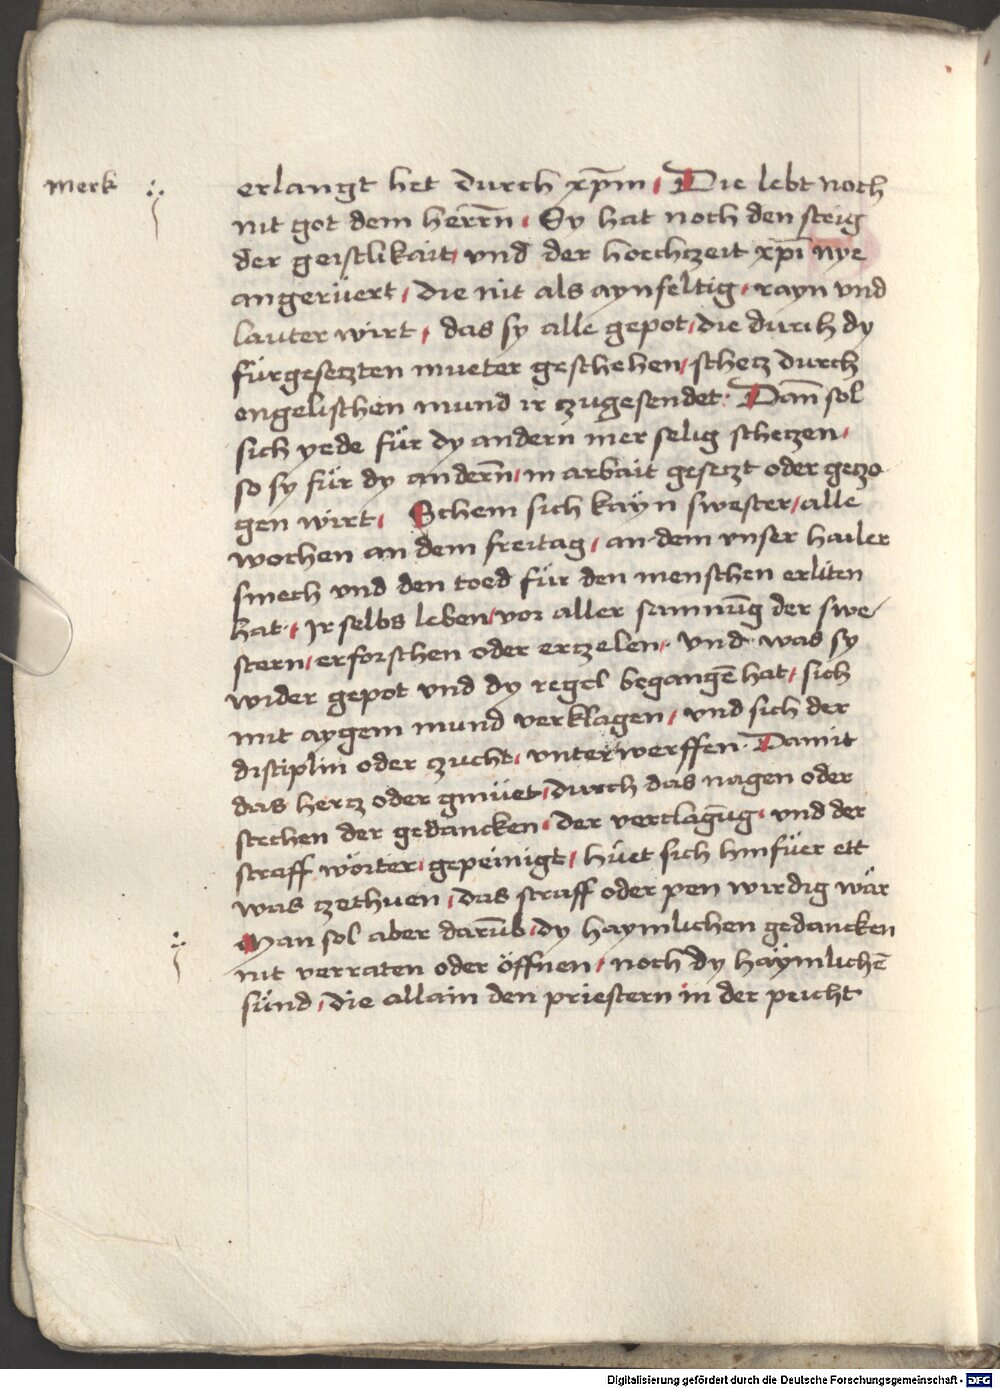 Merk
erlangt het durch xp̄m / Die lebt noch
nit got dem herrn̄ / Sy hat noch den steig
der geistlikait / vnd der hoechczeit xp̄i nye
angerüert / die nit als aynfeltig / rayn vnd
lauter wirt / das sy alle gepot / die durch dy
fürgeseczten mueter geschehen / schecz durch
engelischen mund ir czugesendet · Dan̄ sol
sich yede für dy andern mer selig scheczen /
so sy für dy andern̄ / in arbait geseczt oder geczo
gen wirt / Schem sich kayn swester / alle
wochen an dem freitag / an dem vnser hailer
smech vnd den toed für den menschen erliten
hat / Ir selbs leben / vor aller samnūg der swe
stern / erforschen oder erczelen / vnd was sy
wider gepot vnd dy regel begangē hat / sich
mit aygem mund verklagen / vnd sich der
disciplin oder czucht / vnterwerffen · Damit
das hercz oder gmüet / durch das nagen oder
stechen der gedancken / der verclagūg / vnd der
straff wörter / gepeinigt / hüet sich hinfüer ett
was czethuen / das straff oder pen wirdig wär
Man sol aber darūb / dy haymlichen gedancken
nit verraten oder öffnen / noch dy häymlichē
sünd / die allain den priestern in der peicht
Digitalisierung gefördert durch die Deutsche Forschungsgemeinschaft - DFG